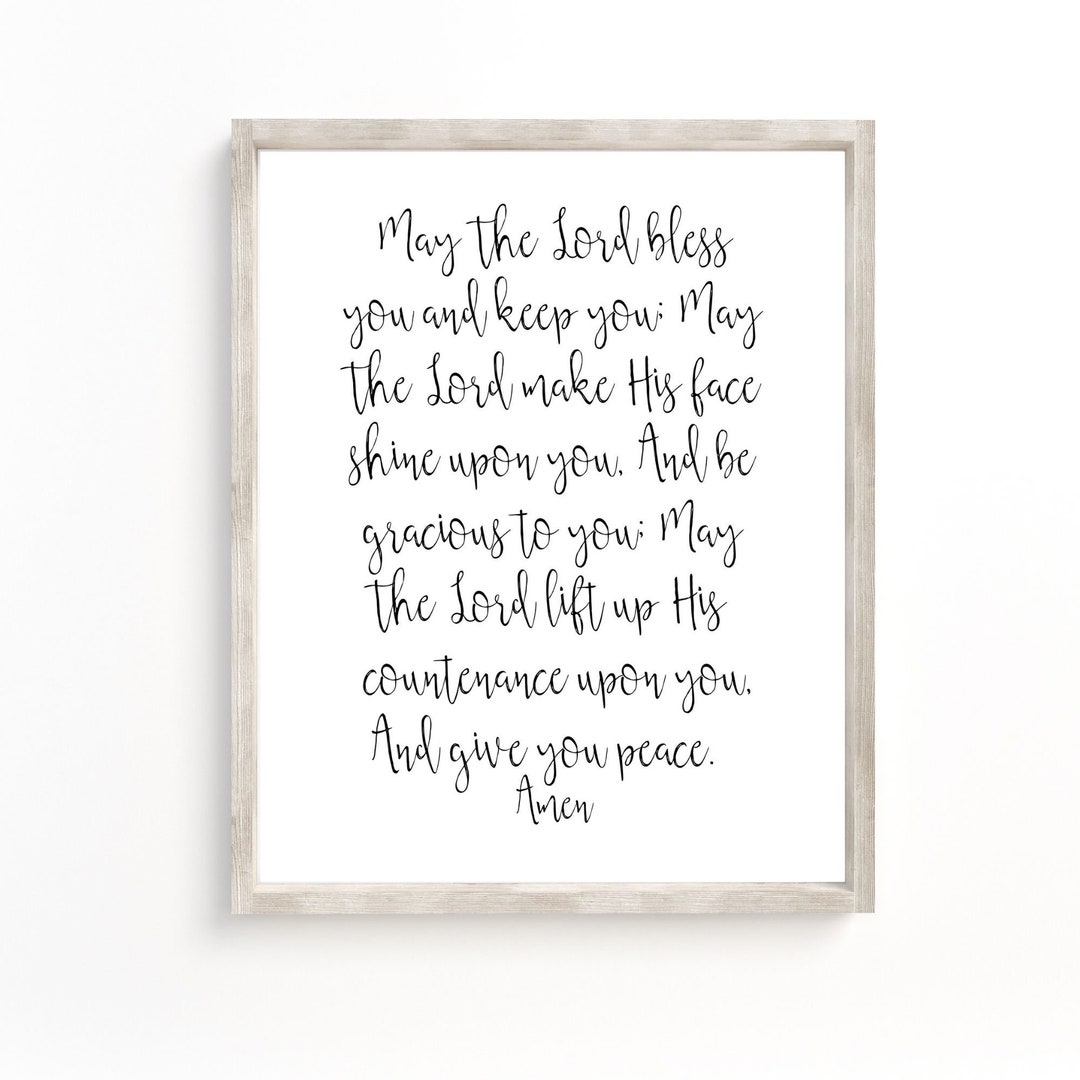 May the Lord bless
you and keep you; May
the Lord make His face
shine upon you, And be
gracious to you; May
the Lord lift up His
countenance upon you,
And give you peace.
Amen